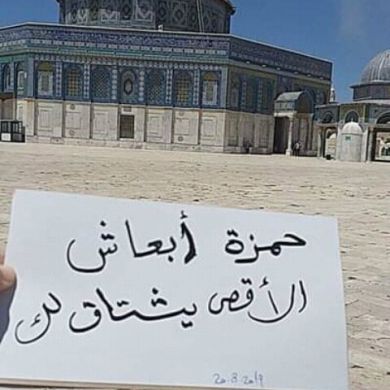 حمزة أبعاش
الأقصى يشتاق لك
20.8.2019